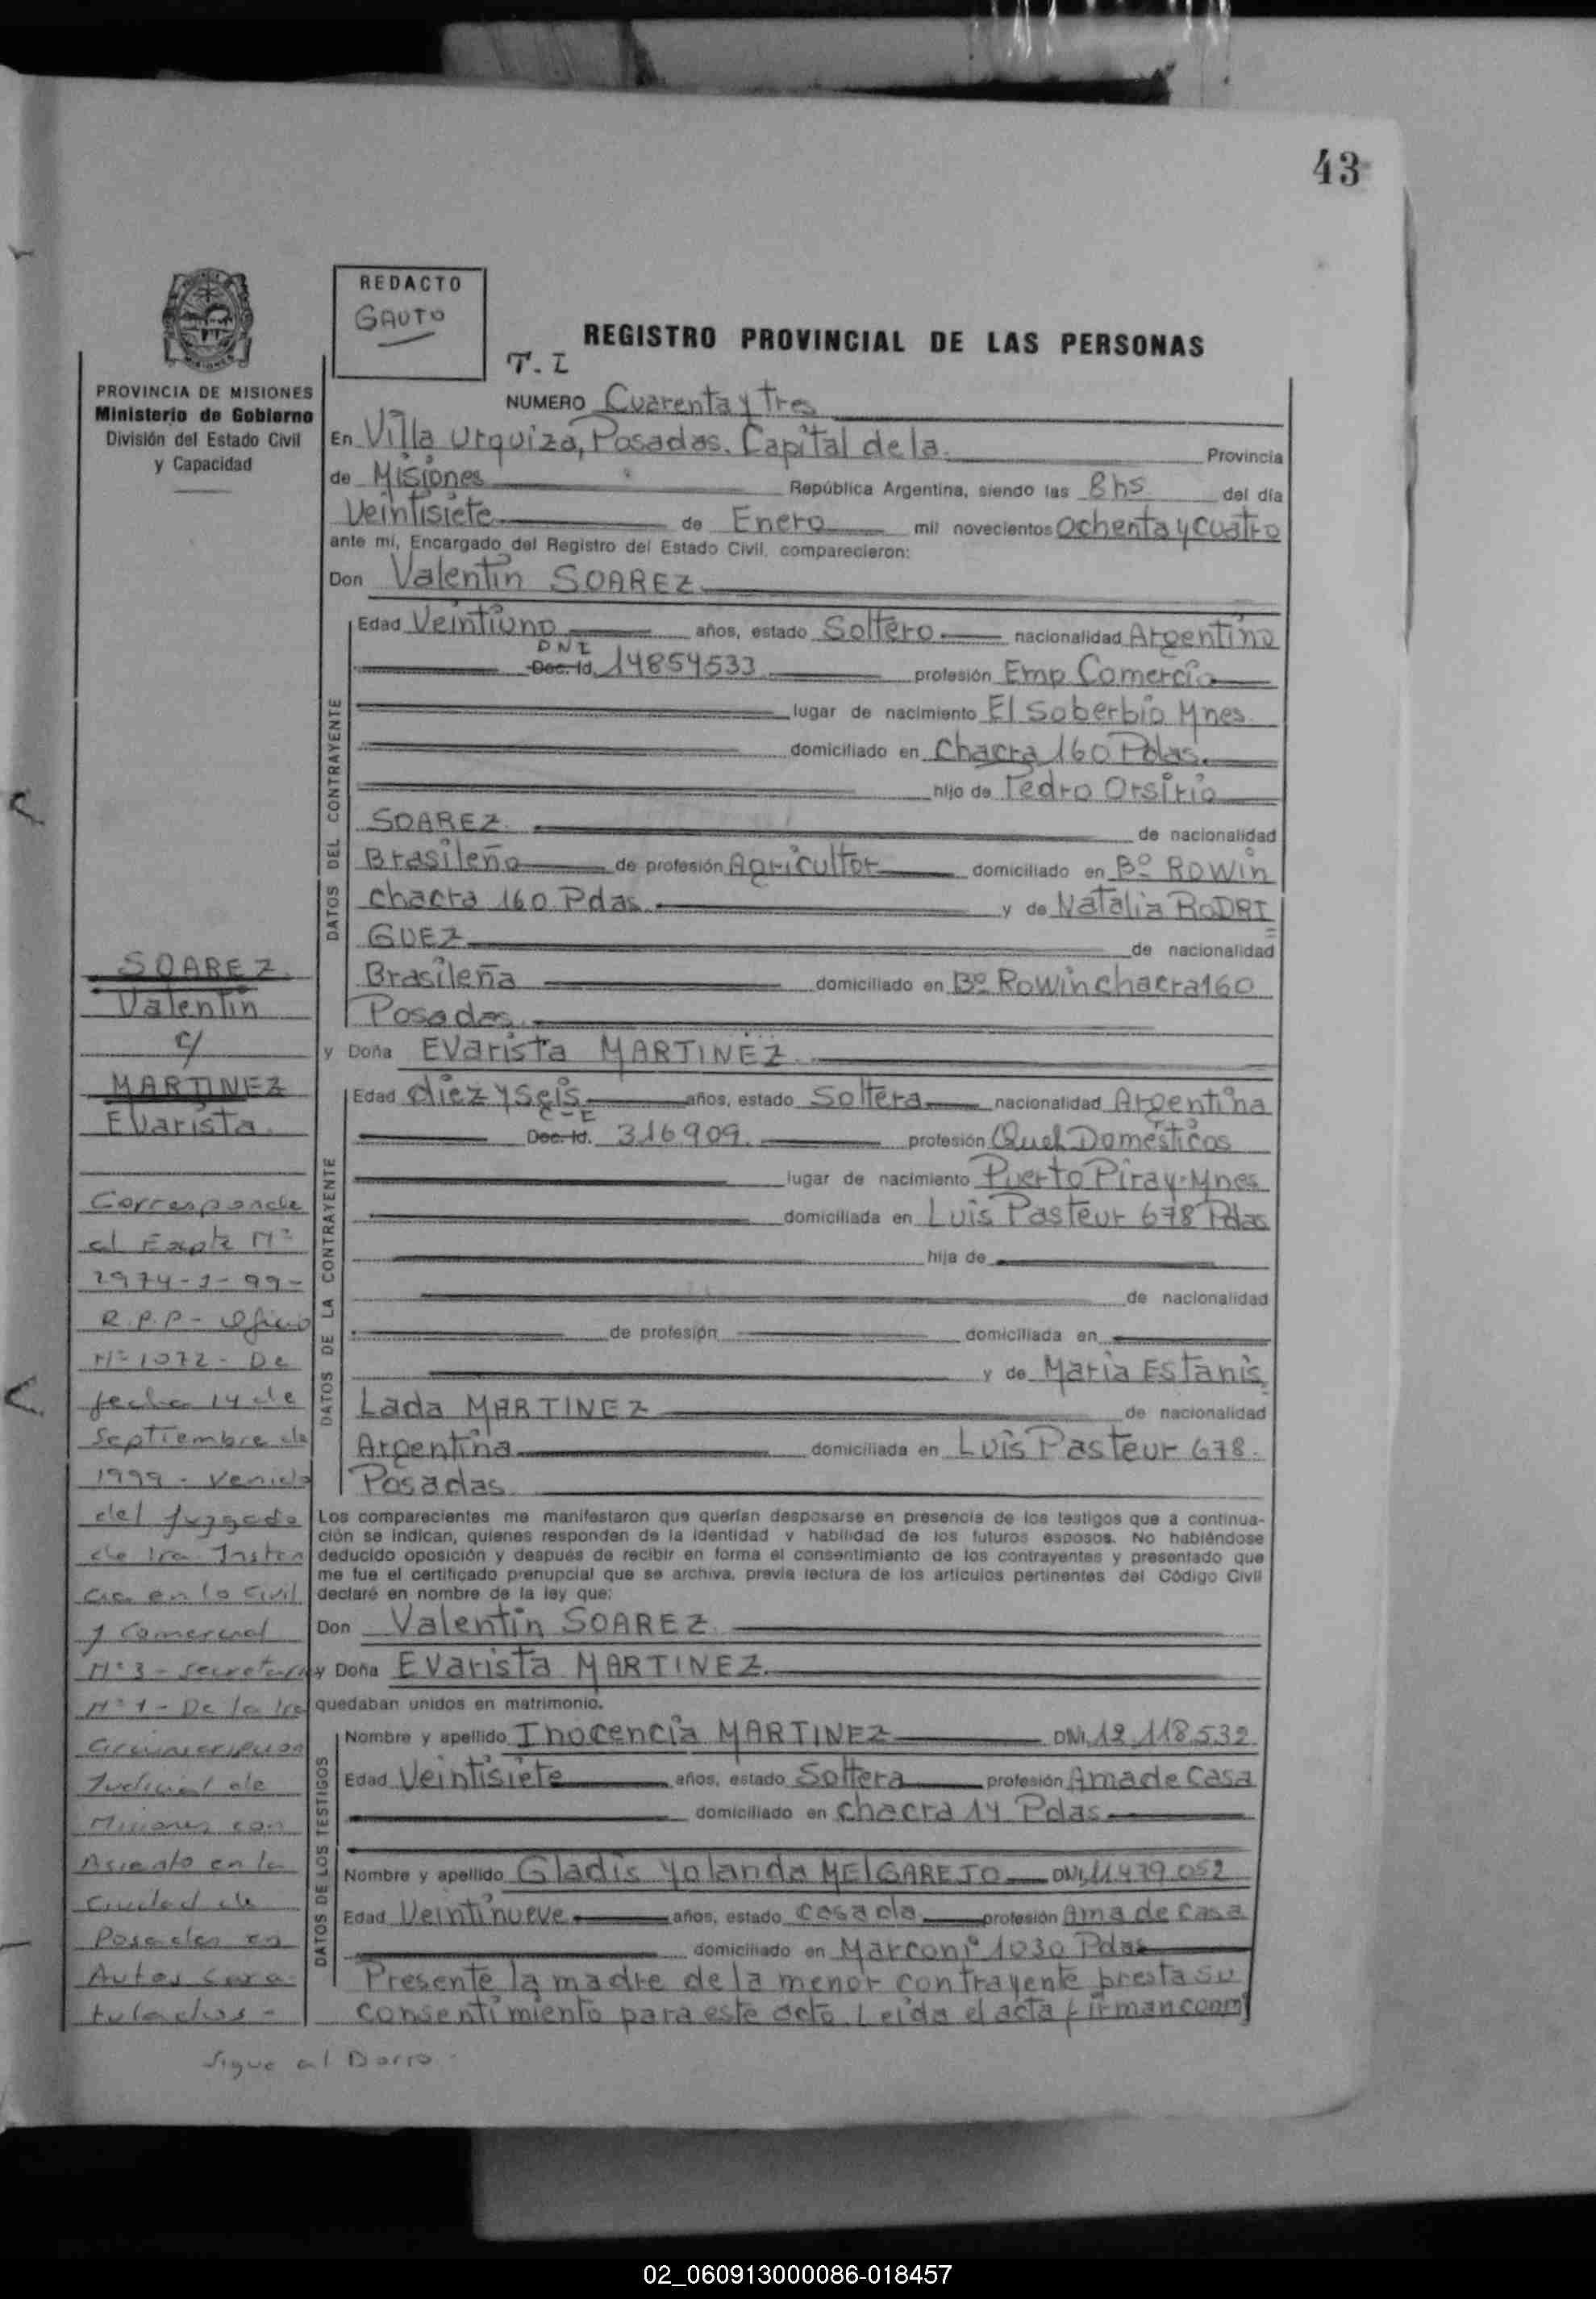 43
REDACTO
GAUTO
REGISTRO PROVINCIAL DE LAS PERSONAS
T. I
PROVINCIA DE MISIONES
Ministerio de Gobierno
División del Estado Civil
y Capacidad
NUMERO Cuarenta y Tres
En Villa Urquiza, Posadas. Capital de la Provincia
de Misiones República Argentina, siendo las 8 hs del día
Veintisiete de Enero mil novecientos Ochenta y cuatro
ante mí, Encargado del Registro del Estado Civil, comparecieron:
Don Valentin SOAREZ
DATOS DEL CONTRAYENTE
Edad Veintiuno años, estado Soltero nacionalidad Argentino
DNI
Doc. Id. 14854533 profesión Emp Comercio
lugar de nacimiento El Soberbio Mnes
domiciliado en Chacra 160 Pdas.
hijo de Pedro Orsirio
SOAREZ de nacionalidad
Brasileño de profesión Agricultor domiciliado en Bº ROWin
chacra 160 Pdas y de Natalia RODRI
GUEZ de nacionalidad
Brasileña domiciliado en Bº Rowin chacra 160
Posadas
y Doña EVarista MARTINEZ
DATOS DE LA CONTRAYENTE
Edad diez y seis años, estado Soltera nacionalidad Argentina
C-E
Doc. Id. 316909 profesión Queh Domésticos
lugar de nacimiento Puerto Piray-Mnes
domiciliada en Luis Pasteur 678 Pdas
hija de
de nacionalidad
de profesión domiciliada en
y de Maria Estanis
Lada MARTINEZ de nacionalidad
Argentina domiciliada en Luis Pasteur 678.
Posadas
Los comparecientes me manifestaron que querían desposarse en presencia de los testigos que a continua-
ción se indican, quienes responden de la identidad y habilidad de los futuros esposos. No habiéndose
deducido oposición y después de recibir en forma el consentimiento de los contrayentes y presentado que
me fue el certificado prenupcial que se archiva, previa lectura de los artículos pertinentes del Código Civil
declaré en nombre de la ley que:
Don Valentin SOAREZ
y Doña EVarista MARTINEZ
quedaban unidos en matrimonio.
DATOS DE LOS TESTIGOS
Nombre y apellido Inocencia MARTINEZ DNI. 12.118.532
Edad Veintisiete años, estado Soltera profesión Ama de Casa
domiciliado en chacra 14 Pdas
Nombre y apellido Gladis Yolanda MElGAREJO DNI. 11.479.052
Edad Veintinueve años, estado casada profesión Ama de casa
domiciliado en Marconi 1030 Pdas
Presente la madre de la menor contrayente presta su
consentimiento para este acto. Leida el acta firman conmi
SOAREZ
Valentin
c/
MARTINEZ
EVarista
Corresponde
al Expte Nº
2974-J-99-
R.P.P- Oficio
Nº 1072- De
fecha 14 de
Septiembre de
1999 - Venido
del Juzgado
de 1ra Instan
cia en lo Civil
y Comercial
Nº 3 - Secretaria
Nº 1 - De la 1ra
Circunscripcion
Judicial de
Misiones con
Asiento en la
Ciudad de
Posadas en
Autos Cara-
tulados -
Sigue al Dorso -
02_060913000086-018457